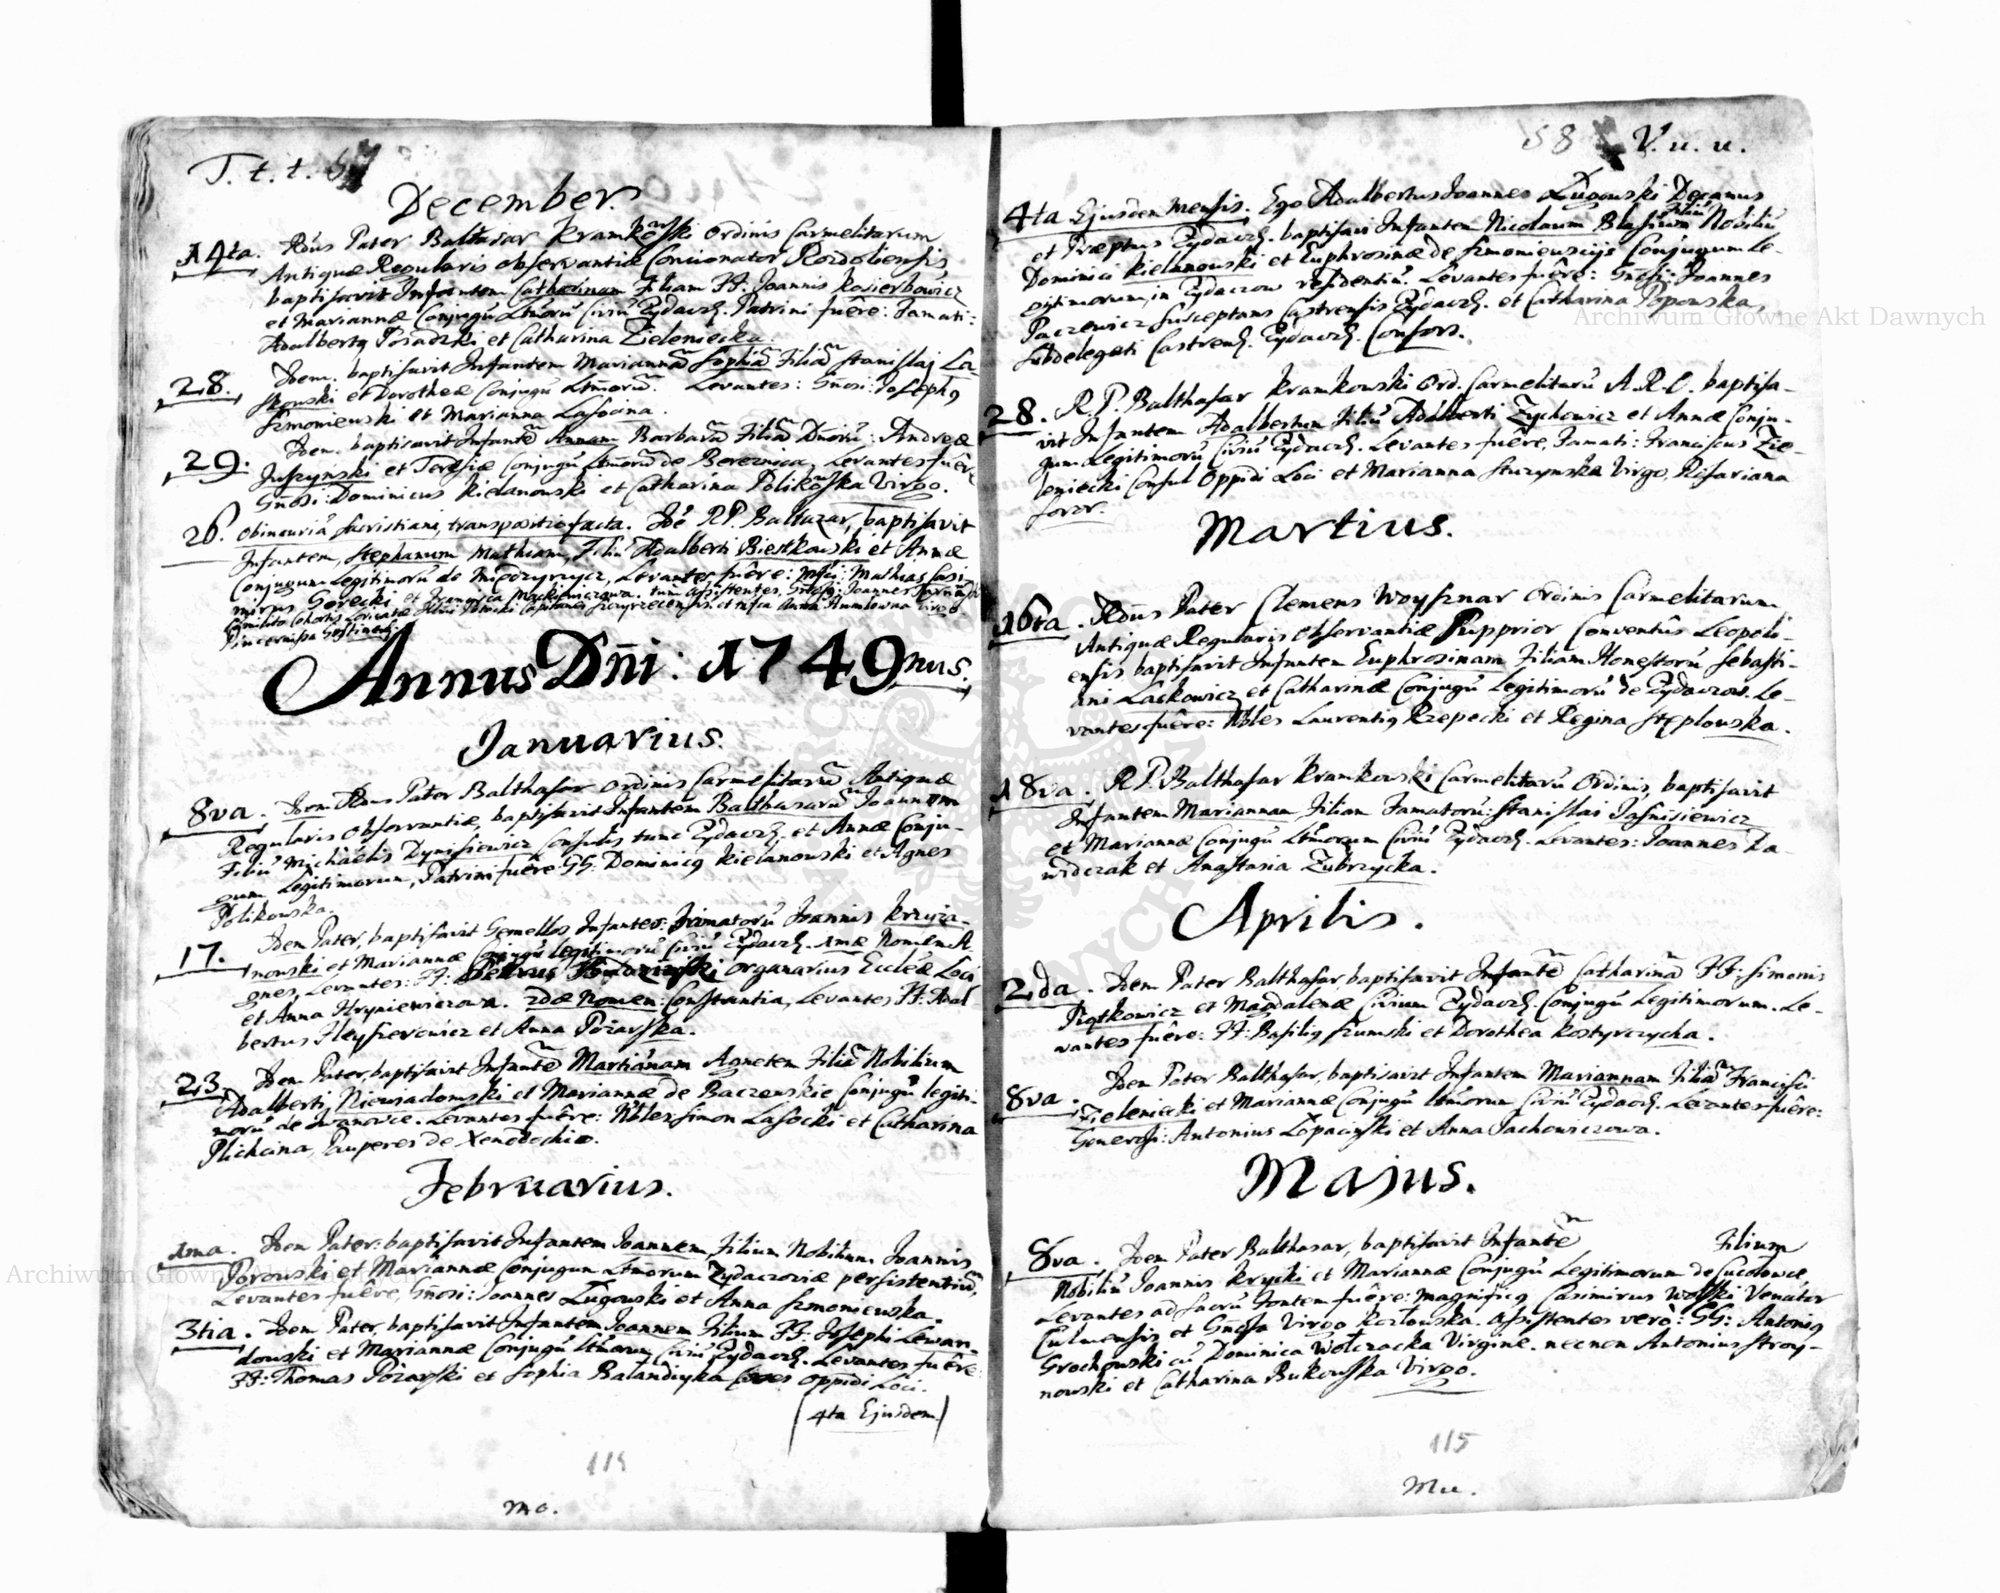 T. t. t.
December.
14ta. Rdus Pater Balthasar Kramkowski Ordinis Carmelitarum
Antiquæ Regularis observantiæ Concionator Rozdoliensis
baptisavit Infantem Catharinam Filiam FF: Joannis Kosierkowicz
et Mariannæ Conjugū Ltmorū Civiū Zydacz. Patrini fuêre: Famati:
Adalbertq Posadzki et Catharina Zieleniecka.
28. Idem. baptisavit Infantem Mariannā Sophiā Filiā Stanislaj La-
skowski et Dorotheæ Conjugū Ltmorū. Levantes: Gnosi: Josephq
Szmoniewski et Marianna Lasocina.
29. Idem. baptisavit Infantē Annam Barbarā Filiā Dnorū: Andreæ
Juszynski et Teresiæ Conjugū Ltmorū de Bereznica, Levantes fuêre
Gnosi: Dominicus Kielanowski et Catharina Polikowska Virgo.
26. Obincuriā Sacristiani, transpositio facta. Idē RP. Baltazar, baptisavit
Infantem, Stephanum Mathiam, Filiū Adalberti Biestkowski et Annæ
Conjugum Legitimorū de Międzyrzycz, Levantes fuêre: Mfci: Mathias Casi
mirus Gorecki et Francisca
Annus Dñi: 1749nus.
Januarius.
8va. Idem Rdus Pater Balthasar Ordinis Carmelitarū Antiquæ
Regularis Observantiæ, baptisavit Infantem Balthasarū Joannem
Filiū Michaelis Dynisiewicz Consulis tunc Zydacz. et Annæ Conju-
gum Legitimorum, Patrini fuêre GG: Dominicq Kielanowski et Agnes
Polikowska.
17. Idem Pater, baptisavit Gemellos Infantes: Famatorū Joannis Krzyża-
nowski et Mariannæ Conjugū Legitimorū Civiū Zydacz. 1mæ Nomen A-
gnes, Levantes: FF: organarius Eccleæ Loci
et Anna Hryniewiczowa. 2dæ Nomen: Constantia, Levantes FF: Adal
bertus Fleyszerowicz et Anna Pożarska.
23. Idem Pater, baptisavit Infantē Martianam Agnetem Filiā Nobilium
Adalberti Niewiadomski et Mariannæ de Baczenskie Conjugū legiti-
morū de Iwanowce. Levantes fuêre: Nbles Simon Lasocki et Catharina
Plichcina, Pauperes de Xenodochio.
Februarius.
1ma. Idem Pater: baptisavit Infantem Joannem, Filium Nobilium Joannis
Porowski et Mariannæ Conjugum Ltmorum Zydaczoviæ persistentiū,
Levantes fuêre, Gnosi: Joannes Lugowski et Anna Szmoniewska.
3tia. Idem Pater, baptisavit Infantem Joannem Filium FF: Josephi Lewan-
dowski et Mariannæ Conjugū Ltmorū Civiū Zydacz. Levantes fuêre:
FF: Thomas Pożarski et Sophia Balandzyka Cives Oppidi Loci.
(4ta Ejusdem)
mo.
58 V. u. u.
4ta Ejusdem Mensis. Ego Adalbertus Joannes Lugowski Decanus
et Præptus Zydacz. baptisavi Infantem Nicolaum Blasium Filiū Nobiliū
Dominici Kielanowski et Euphrosinæ de Szmoniewscijs Conjugum Le-
gitimorum, in Zydaczow residentiū. Levantes fuêre: Gnosi: Joannes
Paczewicz Susceptans Castrensis Zydacz. et Catharina Popowska,
Subdelegati Castren. Zydacz. Consors.
28. R. P. Balthasar Kramkowski Ord. Carmelitarū A. R. O. baptisa-
vit Infantem Adalbertum Filiū Adalberti Zychowicz et Annæ Conju-
gum Legitimorū Civiū Zydacz. Levantes fuêre, Famati: Franciscus Zie-
leniecki Consul Oppidi Loci et Marianna Sturzynska Virgo,
soror.
Martius.
16ta. Rdus Pater Clemens Woysznar Ordinis Carmelitarum
Antiquæ Regularis Observantiæ Supprior Conventûs Leopoli-
ensis baptisavit Infantem Euphrosinam Filiam Honestorū Sebasti-
ani Lackowicz et Catharinæ Conjugū Legitimorū de Zydaczow. Le-
vantes fuêre: Nbles Laurentiq Rzepecki et Regina Stęplowska.
18va. R. P. Balthasar Kramkowski Carmelitarū Ordinis, baptisavit
Infantem Mariannam, Filiam Famatorū: Stanislai Jasnisiewicz
et Mariannæ Conjugū Ltmorum Civiū Zydacz. Levantes: Joannes Da-
widczak et Anastasia Zubrzycka.
Aprilis.
2da. Idem Pater Balthasar, baptisavit Infantē Catharinā FF: Simonis
Piątkowicz et Magdalenæ Civium Zydacz. Conjugū Legitimorum. Le-
vantes fuêre: FF: Basiliq Szumski et Dorothea Kostyrczycha.
8va. Idem Pater Balthasar, baptisavit Infantem Mariannam Filiā Francisci
Zieleniecki et Mariannæ Conjugū Ltmorum Civiū Zydacz. Levantes fuêre:
Generosi: Antonius Łopacinski et Anna Jachowiczowa.
Majus.
8va. Idem Pater Balthasar, baptisavit Infantē Filium
Nobiliū Joannis Krycki et Mariannæ Conjugū Legitimorum de
Levantes ad Sacrū Fontem fuêre: Magnificq Casimirus Wolski Venator
Culmensis et Gnosa Virgo Kozłowska. Assistentes verò: GG: Antoniq
Grochowski cū Dominica Wołczacka Virginē. necnon Antonius Stroy-
nowski et Catharina Bukowska Virgo.
115
Mu.
Archiwum Główne Akt Dawnych
Archiwum Główne Akt Dawnych